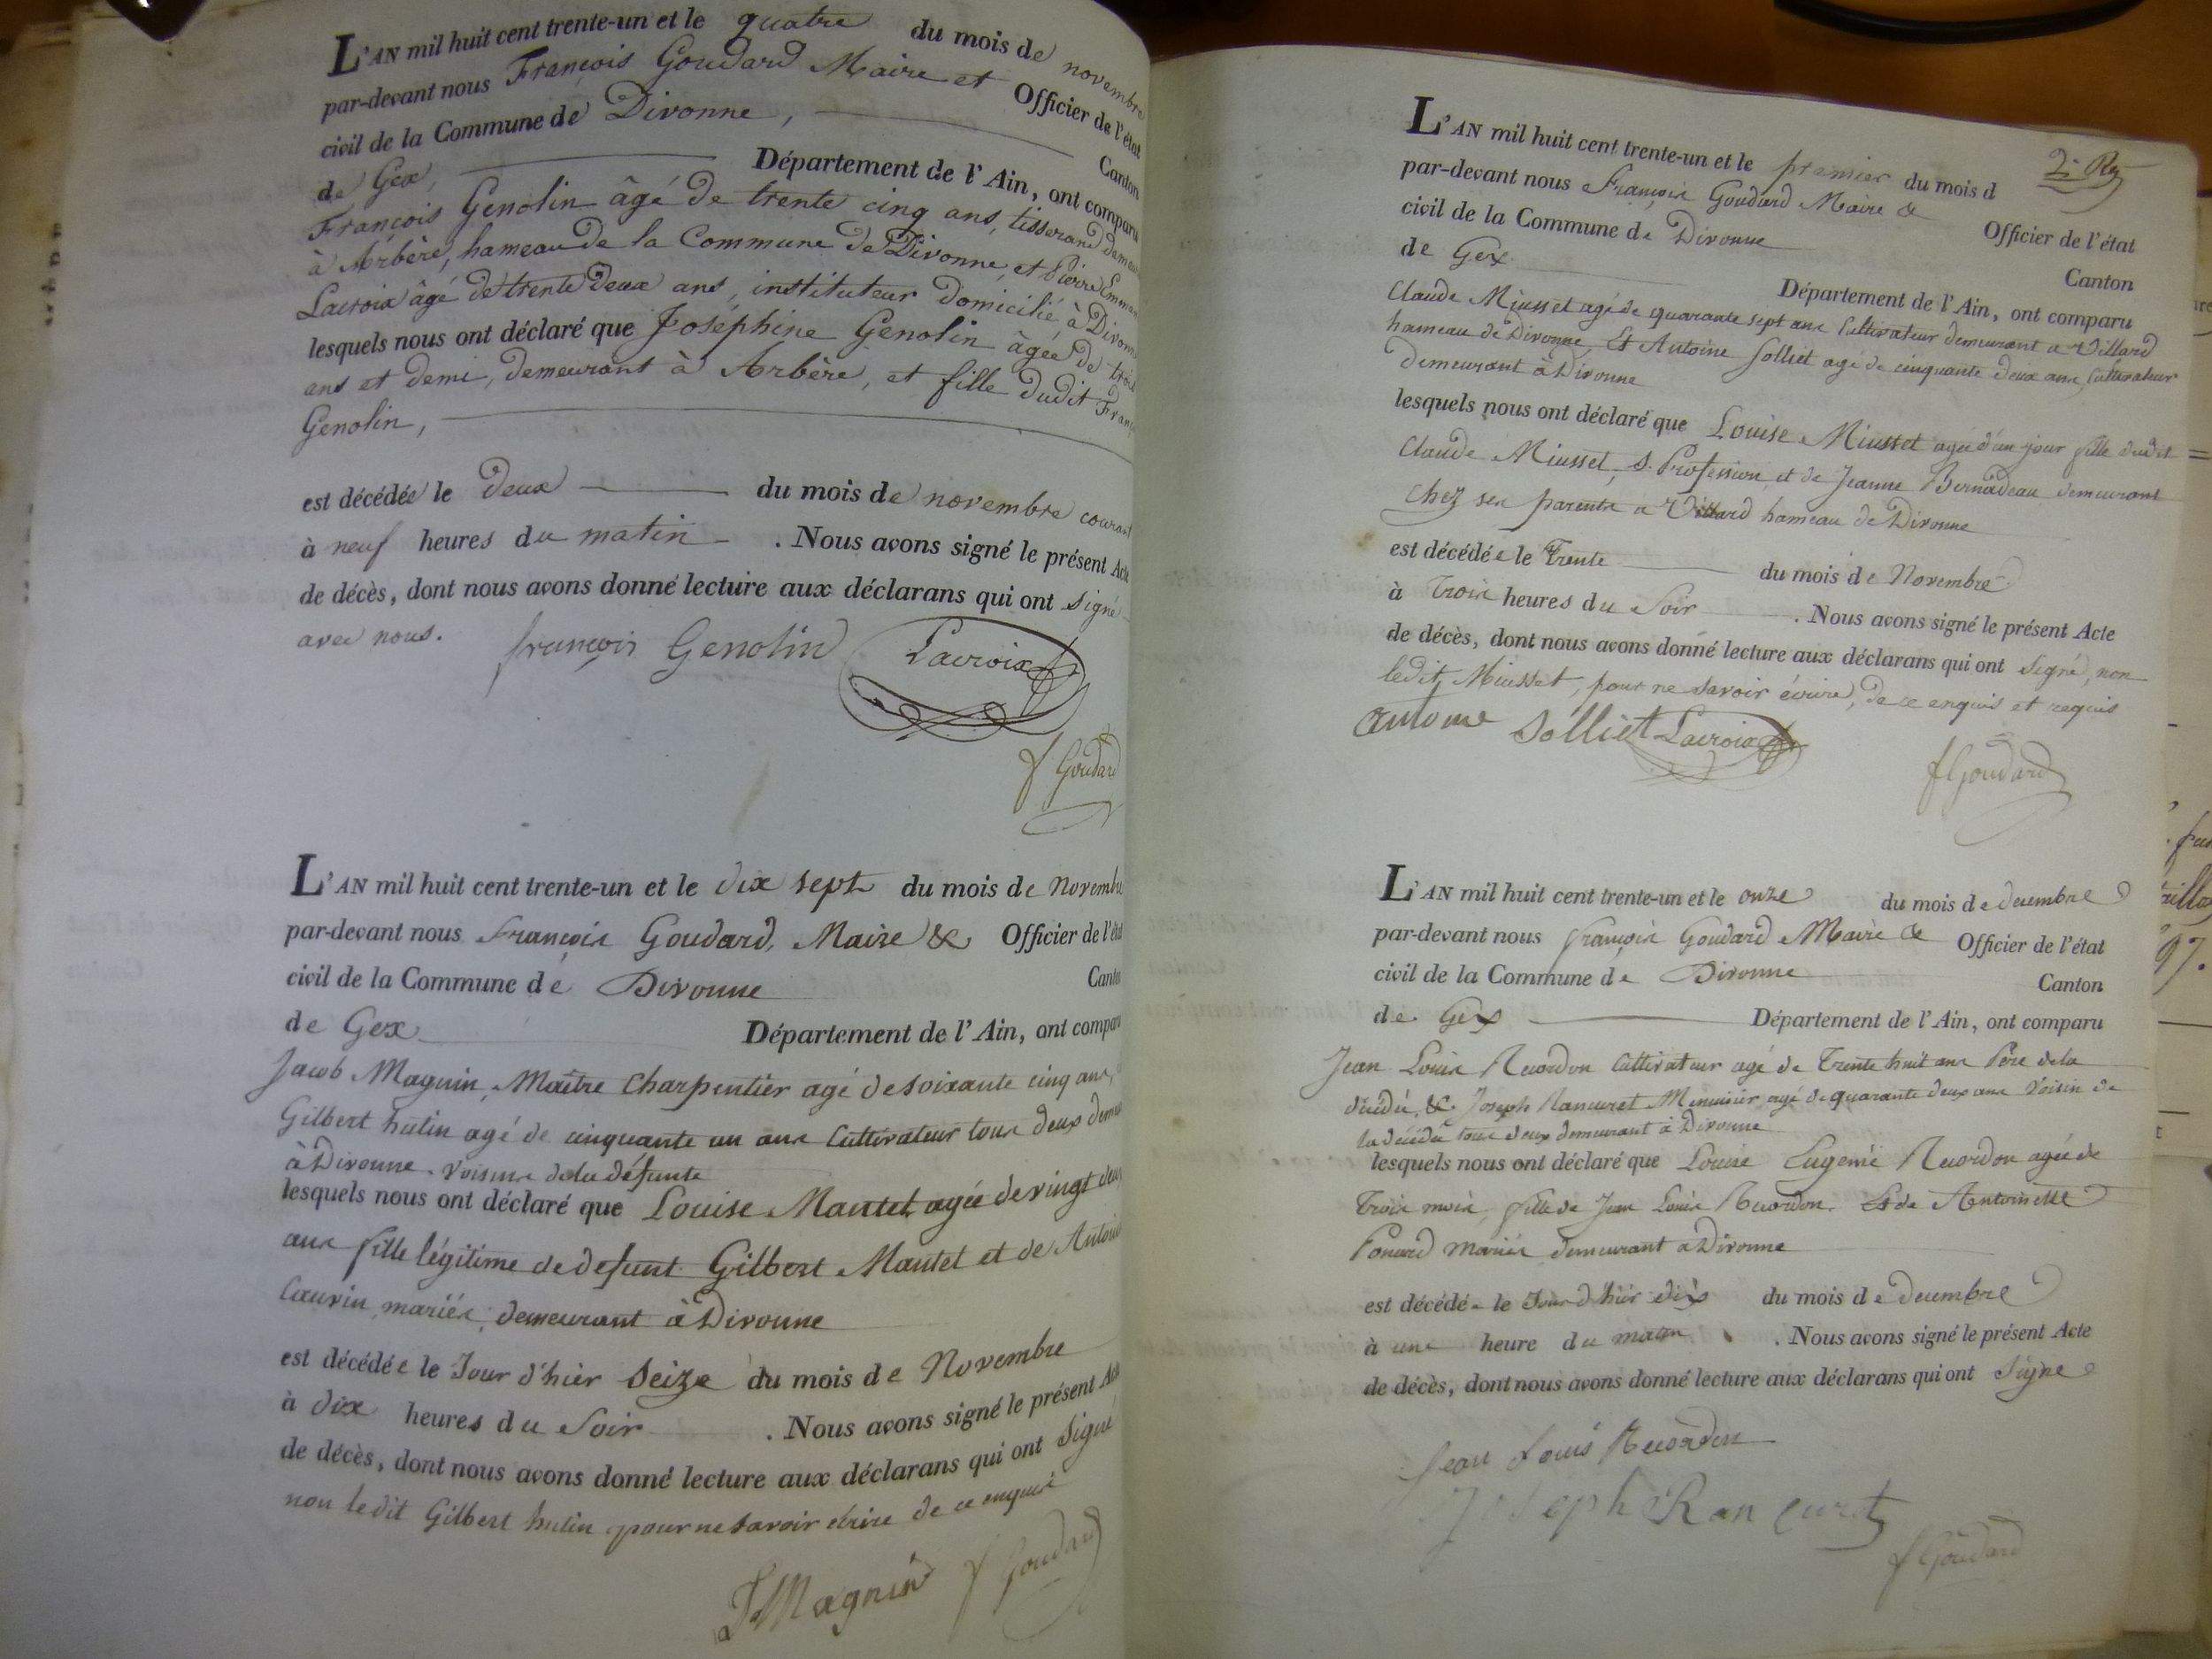 L'AN mil huit cent trente-un et le quatre du mois de novembre
par-devant nous François Goudard Maire et Officier de l'état
civil de la Commune de Divonne, Canton
de Gex, Département de l'Ain, ont comparu
François Genolin âgé de trente cinq ans, tisserand
à Arbère, hameau de la Commune de Divonne, et Pierre
Lacroix âgé de trente deux ans, instituteur domicilié à Divonne
lesquels nous ont déclaré que Joséphine Genolin âgée de trois
ans et demi, demeurant à Arbère, et fille dudit
Genolin,
est décédée le deux du mois de novembre courant
à neuf heures du matin . Nous avons signé le présent Acte
de décès, dont nous avons donné lecture aux déclarans qui ont signé
avec nous. françois Genolin Lacroix
f Goudard
L'AN mil huit cent trente-un et le dix sept du mois de Novembre
par-devant nous François Goudard, Maire & Officier de l'état
civil de la Commune de Divonne Canton
de Gex Département de l'Ain, ont comparu
Jacob Magnin, Maître Charpentier agé de soixante cinq ans,
Gilbert hutin agé de cinquante un ans Cultivateur tous deux
à Divonne. Voisins de la défunte
lesquels nous ont déclaré que Louise Mantel agée de vingt deux
ans fille légitime de defunt Gilbert Mantel et de
Cauvin mariés, demeurant à Divonne
est décédée le Jour d'hier Seize du mois de Novembre
à dix heures du Soir . Nous avons signé le présent Acte
de décès, dont nous avons donné lecture aux déclarans qui ont Signé
non ledit Gilbert hutin pour ne savoir écrire de ce enquis
J Magnin f Goudard
2e Rg
L'AN mil huit cent trente-un et le premier du mois d
par-devant nous François Goudard Maire & Officier de l'état
civil de la Commune de Divonne Canton
de Gex Département de l'Ain, ont comparu
Claude Miusset agé de quarante sept ans Cultivateur demeurant a Villard
hameau de Divonne, Et Antoine Solliet agé de cinquante deux ans, Cultivateur
demeurant à Divonne
lesquels nous ont déclaré que Louise Miusset agée d'un jour fille dudit
Claude Miusset, S. Profession et de Jeanne Bernadeau demeurant
chez ses parents a Villard hameau de Divonne
est décédée le Trente du mois de Novembre
à Trois heures du Soir . Nous avons signé le présent Acte
de décès, dont nous avons donné lecture aux déclarans qui ont Signé, non
ledit Miusset, pour ne savoir écrire, de ce enquis et requis
antoine Solliet Lacroix
f Goudard
L'AN mil huit cent trente-un et le onze du mois de decembre
par-devant nous françois Goudard Maire & Officier de l'état
civil de la Commune de Divonne Canton
de Gex Département de l'Ain, ont comparu
Jean Louis Recordon Cultivateur agé de Trente huit ans Père de la
décédé, & Joseph Rancuret Menuisier agé de quarante deux ans Voisin de
la décédé tous deux demeurant à Divonne
lesquels nous ont déclaré que Louise Eugenie Recordon agée de
Trois mois, fille de Jean Louis Recordon Et de Antoinette
Ponard mariés demeurant a Divonne
est décédée le Jour d'hier dix du mois de decembre
à une heure du matin . Nous avons signé le présent Acte
de décès, dont nous avons donné lecture aux déclarans qui ont Signe
Jean Louis Recordon
Joseph Rancuret
f Goudard
97.